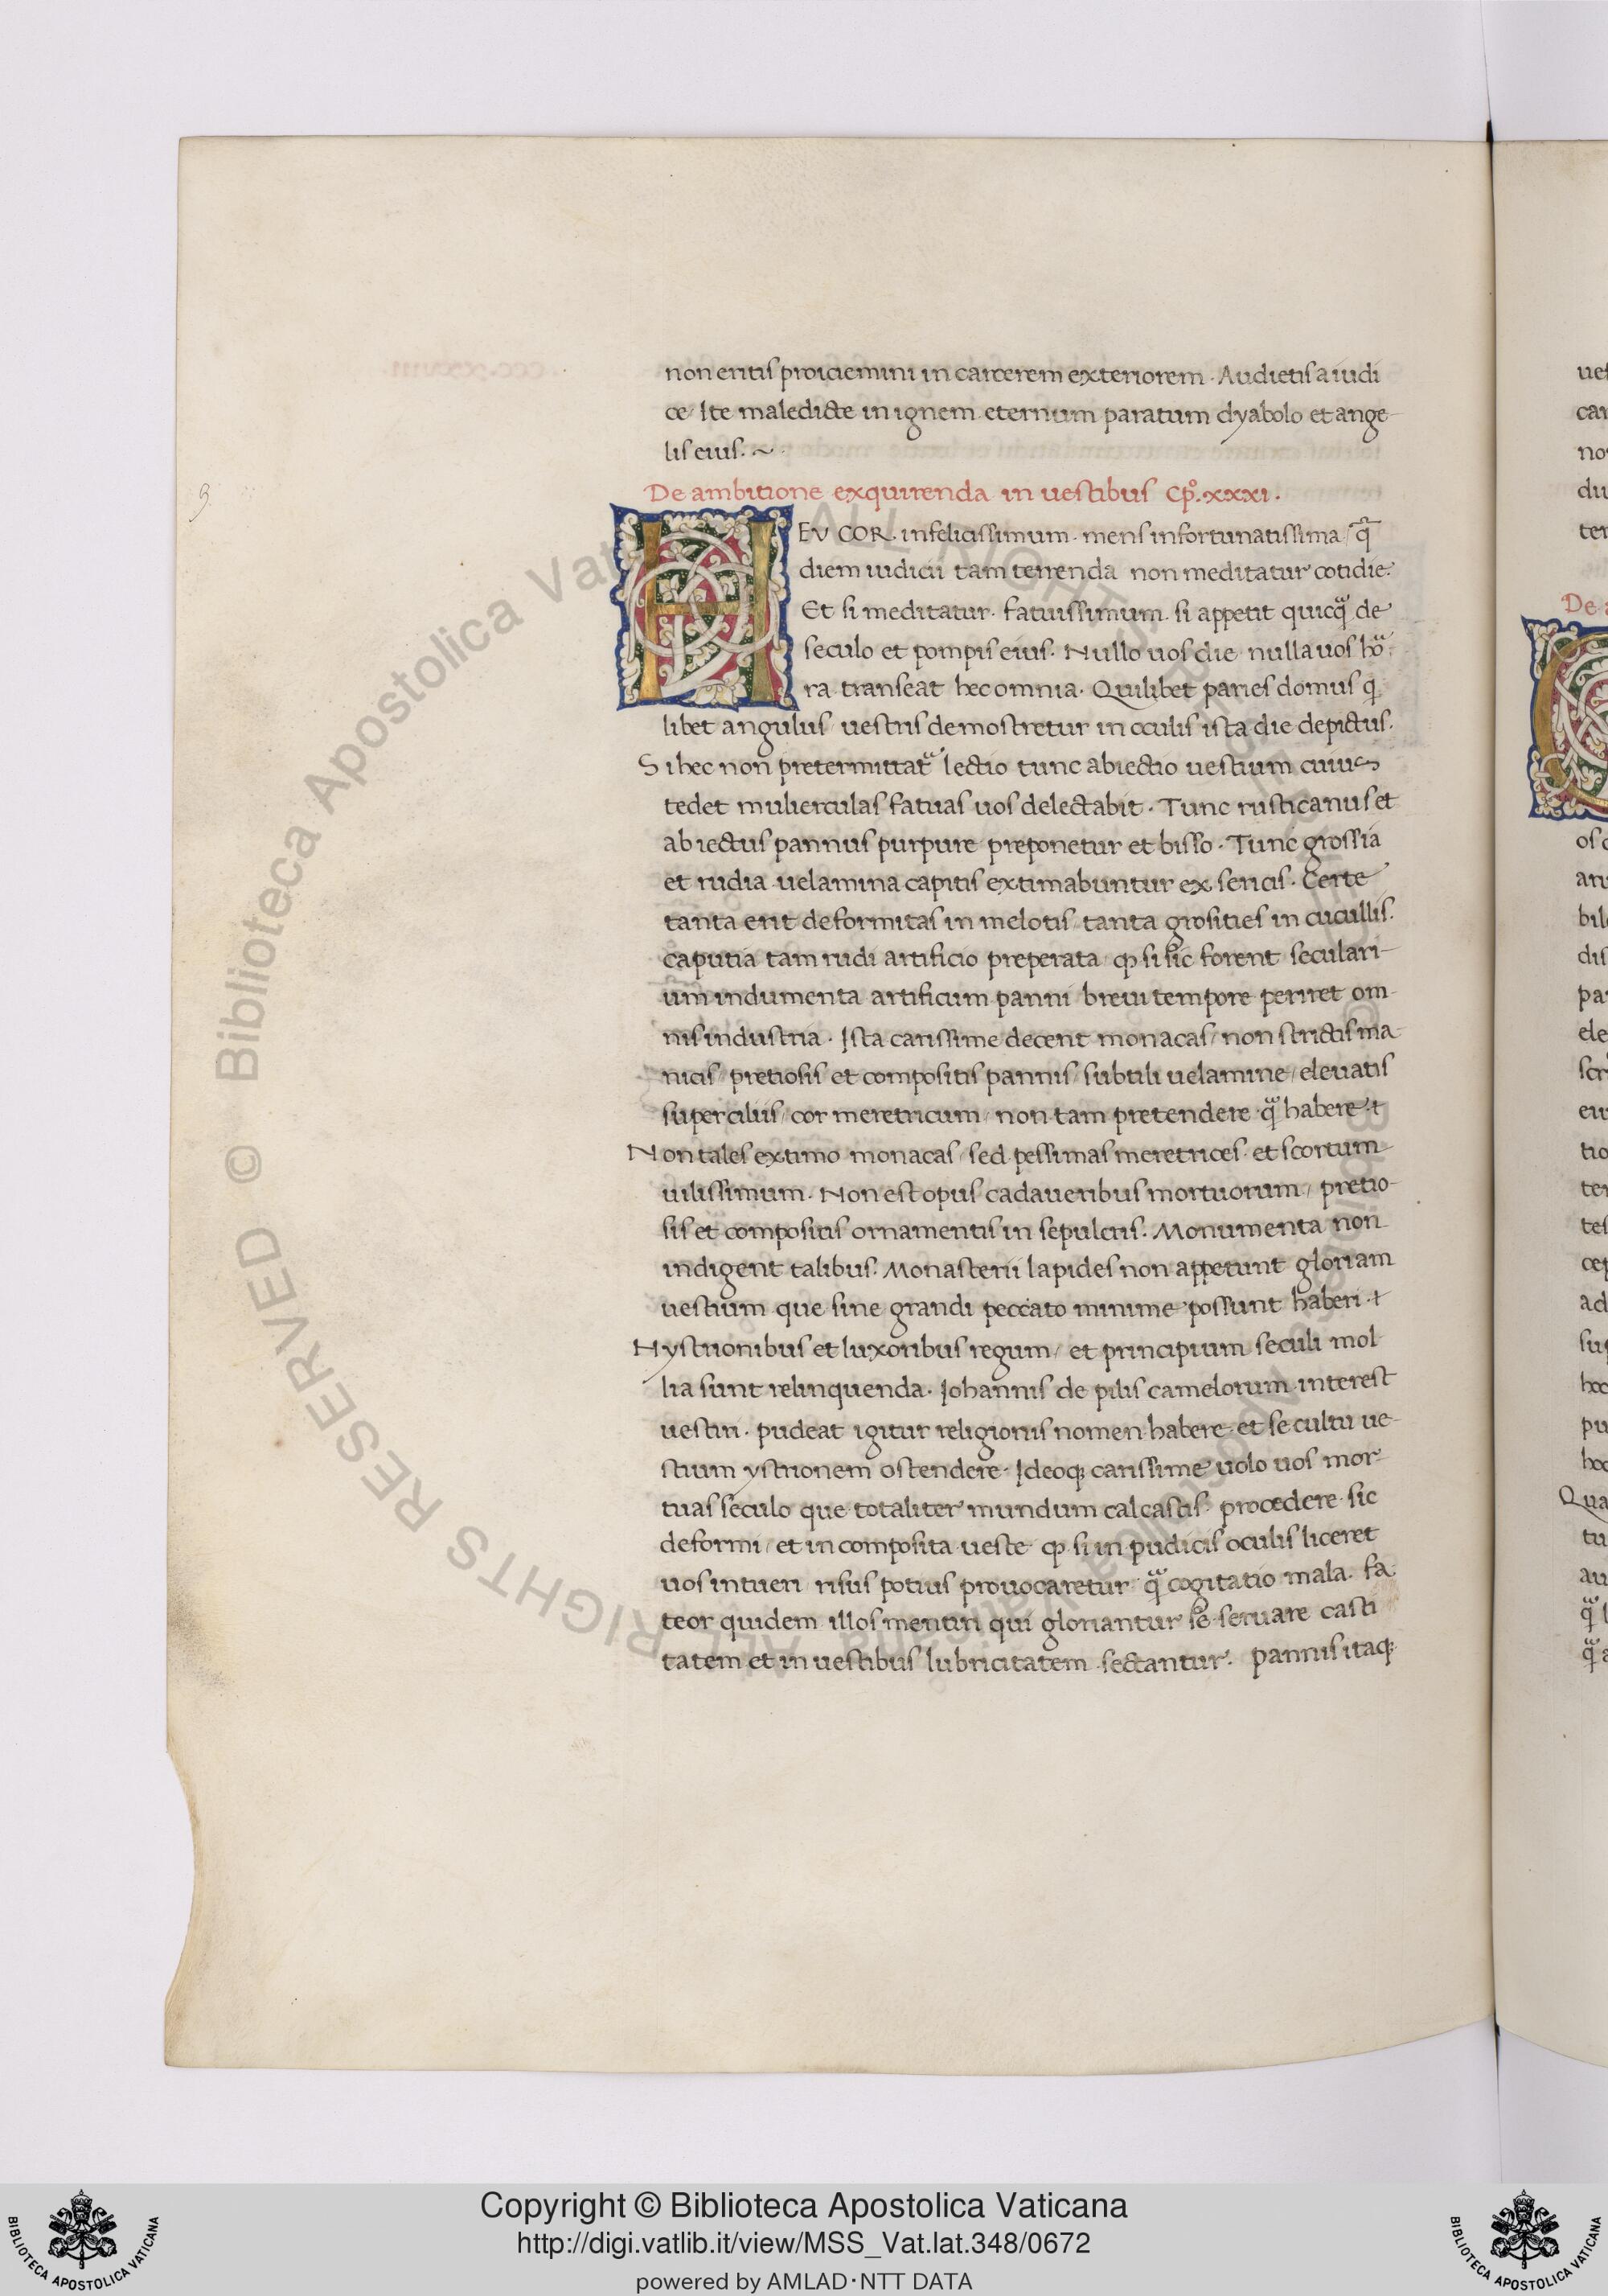 non eritis proiciemini in carcerem exteriorem · Audietis a iudi
ce / Ite maledicte in ignem eternum paratum dyabolo et ange-
lis eius. ~
De ambitione exquirenda in uestibus Cp̊. xxxi.
HEV COR · infelicissimum · mens infortunatissima / q̄
diem iudicii tam terrenda non meditatur cotidie.
Et si meditatur · fatuissimum · si appetit quicq̄ de
seculo et pompis eius. Nullo uos die nulla uos ho
ra transeat hec omnia. Quilibet paries domus q
libet angulus uestris demostretur in oculis ista die depictus.
Si hec non pretermittat̄ lectio tunc abiectio uestium cuius
tedet mulierculas fatuas uos delectabit. Tunc rusticanus et
abiectus pannus purpure preponetur et bisso. Tunc grossia
et rudia uelamina capitis extimabuntur ex sericis. Certe
tanta erit deformitas in melotis / tanta grosities in cucullis.
caputia tam rudi artificio preperata ꝙ si sic forent seculari-
um indumenta artificum panni breui tempore periret om-
nis industria. Ista carissime decent monacas / non strictis ma
nicis / pretiosis et compositis pannis / subtili uelamine / eleuatis
superciliis / cor meretricum / non tam pretendere q̄ habere. t
Non tales extimo monacas / sed pessimas meretrices et scortum
uilissimum. Non est opus cadaueribus mortuorum / pretio-
sis et compositis ornamentis in sepulcris. Monumenta non
indigent talibus. Monasterii lapides non appetunt gloriam
uestium que sine grandi peccato minime possunt haberi. t
Hystrionibus et luxoribus regum / et principium seculi mol
lia sunt relinquenda. Iohannis de pilis camelorum interest
uestiri. pudeat igitur religionis nomen habere et se cultu ue-
stium ystrionem ostendere. Ideoq; carissime uolo uos mor-
tuas seculo que totaliter mundum calcastis procedere sic
deformi / et in composita ueste ꝙ si in pudicis oculis liceret
uos intueri risus potius prouocaretur q̄ cogitatio mala. fa
teor quidem illos mentiri qui gloriantur se seruare casti
tatem et in uestibus lubricitatem sectantur. pannis itaq;
© Biblioteca Apostolica Vaticana ALL RIGHTS RESERVED
Copyright © Biblioteca Apostolica Vaticana
http://digi.vatlib.it/view/MSS_Vat.lat.348/0672
powered by AMLAD·NTT DATA
BIBLIOTECA APOSTOLICA VATICANA
BIBLIOTECA APOSTOLICA VATICANA